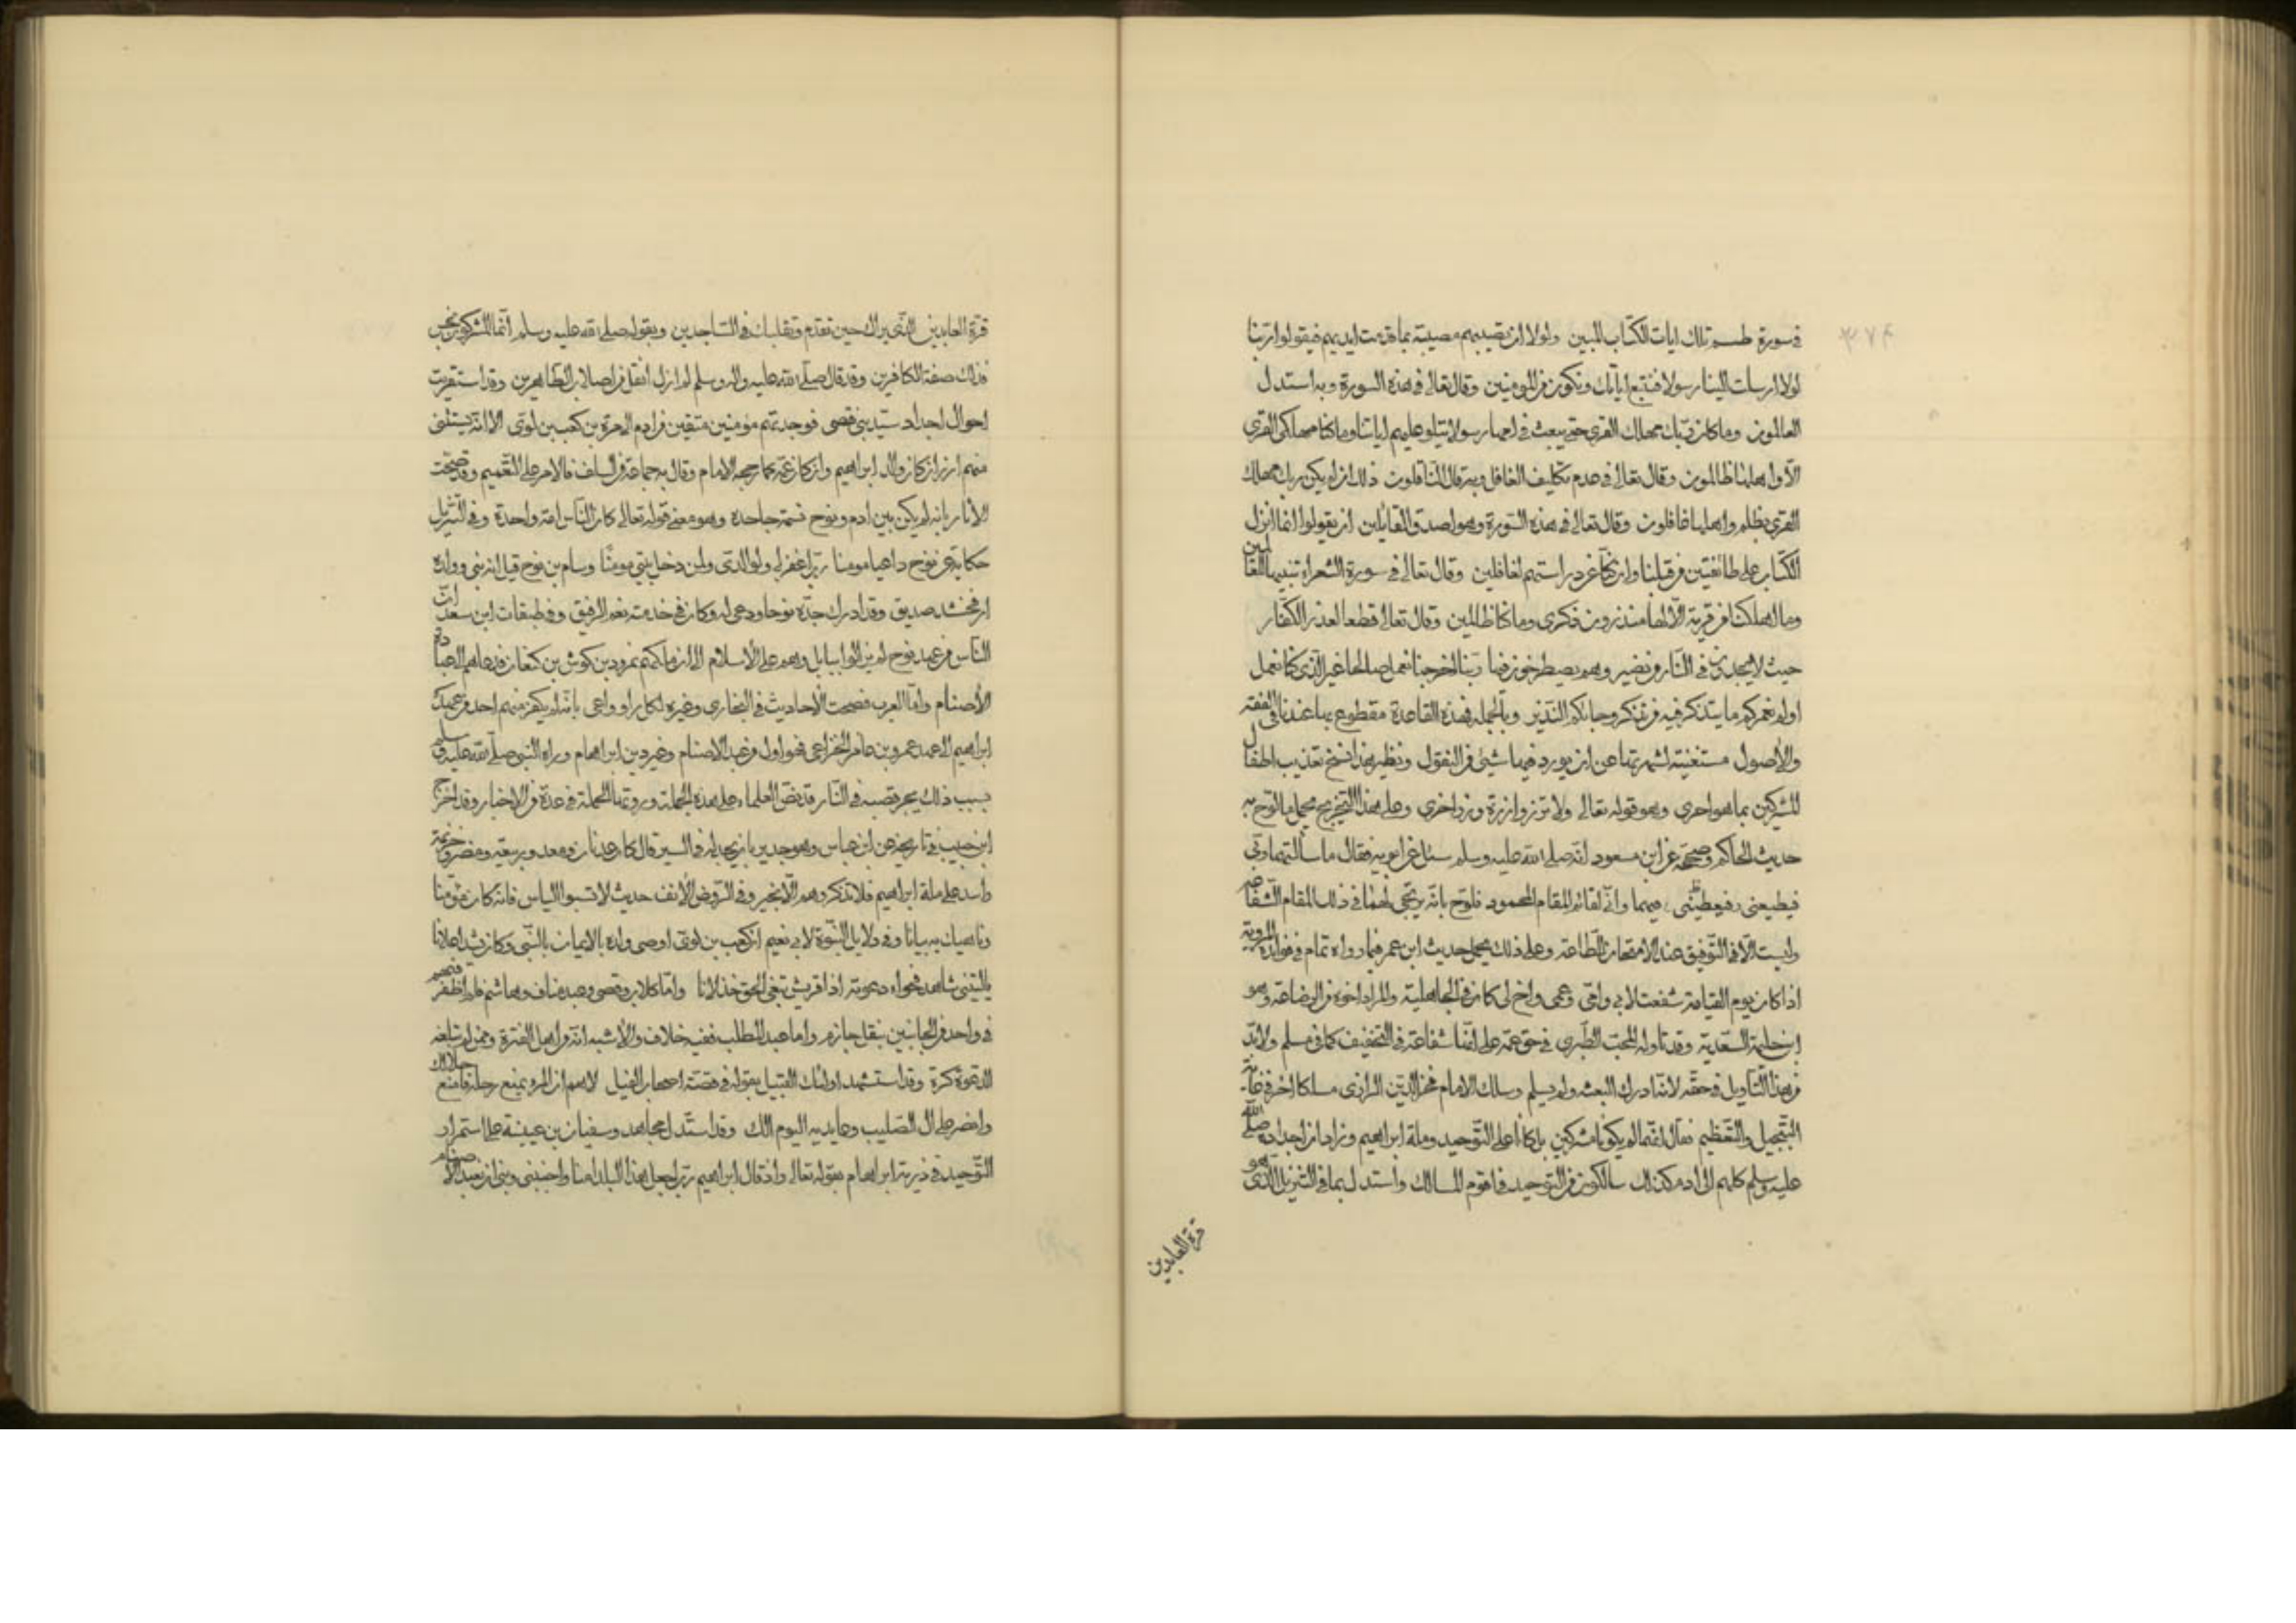 في سورة طسم تلك ايات الكتاب المبين ولولا ان تصيبهم مصيبة بما قدمت ايديهم فيقولوا ربنا
لولا ارسلت الينا رسولا فنتبع اياتك ونكون من المومنين وقال تعالى في هذه السورة وبه استدل
العالمون وما كان ربك مهلك القرى حتى يبعث في امها رسولا يتلو عليهم اياتنا وما كنا مهلكى القرى
الا واهلها ظالمون وقال تعالى في عدم تكليف الغافل وبه قال الناقلون ذلك ان لم يكن ربك مهلك
القرى بظلم واهلها غافلون وقال تعالى في هذه السورة وهو اصدق القائلين ان يقولوا انما انزل
الكتاب على طائفتين من قبلنا وان كنا عن دراستهم لغافلين وقال تعالى في سورة الشعراء تنبيها للغافلين
وما اهلكنا من قرية الا لها منذرون ذكرى وما كنا ظالمين وقال تعالى قطعا لعذر الكفار
حيث لا يجدون في النار من نصير وهم يصطرخون فيها ربنا اخرجنا نعمل صالحا غير الذى كنا نعمل
اولم نعمركم ما يتذكر فيه من تذكر وجاءكم النذير وبالجملة فهذه القاعدة مقطوع بها عندنا في الفقه
والاصول مستغنية لشهرتها عن ان يورد فيها شيئ من النقول ونظير هذا نسخ تعذيب اطفال
المشركين بما هو احرى وهو قوله تعالى ولا تزر وازرة وزر اخرى وعلى هذا التخريج يحمل ما لوح به
حديث الحاكم وصححه عن ابن مسعود انه صلى الله عليه وسلم سئل عن ابويه فقال ما سالتهما ربى
فيطيعنى فيهما وانى لقائم المقام المحمود فلوح بانه يرتجى لهما في ذلك المقام الشفاعه
وليست الا في التوفيق عند الامتحان للطاعة وعلى ذلك يحمل حديث ابن عمر فيما رواه تمام في فوائده المروية
اذا كان يوم القيامة شفعت لابى وامى وعمى واخ لى كان في الجاهلية والمراد اخوه من الرضاعة وهو
ابن حليمة السعدية وقد تاوله المحب الطبرى في حق عمه على انها شفاعة في التخفيف كما في مسلم ولا بد
من هذا التأويل في حقه لانه ادرك البعثة ولم يسلم وسلك الامام فخر الدين الرازى مسلكا اخر في غاية
التبجيل والتعظيم فقال انهما لم يكونا مشركين بل كانا على التوحيد وملة ابراهيم وزاد ان اجداده صلى الله
عليه وسلم كلهم الى ادم كذلك سالكون من التوحيد في اقوم المسالك واستدل بما في التنزيل الذى هو
قرة العابدين
قرة العابدين الذى يراك حين تقوم وتقلبك في الساجدين وبقوله صلى الله عليه وسلم انما المشركون نجس
فذلك صفة الكافرين وقد قال صلى الله عليه واله وسلم لم ازل انقل من اصلاب الطاهرين وقد استقريت
احوال اجداد سيد بنى قصى فوجدتهم مؤمنين متقين من ادم الى مرة بن كعب بن لوى الا انه يستثنى
منهم ازر ان كان والد ابراهيم وان كان عمه كما رجحه الامام وقال به جماعة من السلف فالامر على التعميم وقد صحت
الاثار بانه لم يكن بين ادم ونوح نسمة جاحدة وهو معنى قوله تعالى كان الناس امة واحدة وفي التنزيل
حكاية عن نوح داعيا مومنا رب اغفر لى ولوالدى ولمن دخل بيتى مومنا وسام بن نوح قيل انه نبى وولده
ارفخشد صديق وقد ادرك جده نوحا ودعى له وكان في خدمته نعم الرفيق وفي طبقات ابن سعد ان
الناس من عهد نوح لم يزالوا ببابل وهم على الاسلام الى ان ملكهم نمرود بن كوش بن كنعان فدعاهم الى عبادة
الاصنام واما العرب فصحت الاحاديث في البخارى وغيره لكل راو وواعى بانه لم يكفر منهم احد من عهد
ابراهيم الى عهد عمرو بن عامر الخزاعى فهو اول من عبد الاصنام وغير دين ابراهام وراه النبى صلى الله عليه وسلم
بسبب ذلك يجر قصبه في النار قد نص العلماء على هذه الجملة ورويناه للحملة في عدة من الاخبار وقد اخرج
ابن حبيب في تاريخه عن ابن عباس وهو جدير بان يحمد له في السير قال كان عدنان ومعد وربيعة ومضر وخزيمة
واسد على ملة ابراهيم فلا تذكروهم الا بخير وفي الروض الانف حديث لا تسبوا الياس فانه كان مؤمنا
وناهيك به بيانا وفي دلايل النبوة لابى نعيم ان كعب بن لوى اوصى ولده بالايمان بالنبى وكان ينشد اعلانا
ياليتنى شاهد فحواء دعوته اذا قريش تبغى الحق خذلانا واما كلاب وقصى وعبد مناف وهاشم فلم اظفر فيهم
في واحد من الجانبين بنقل جازم واما عبد المطلب ففيه خلاف والاشبه انه من اهل الفترة وممن لم تبلغه
الدعوة كرة وقد استشهد اولئك القبيل بقوله في قصة اصحاب الفيل لاهم ان المرء يمنع رحله فامنع حلالك
وانصر على ال الصليب وعابديه اليوم الك وقد استدل مجاهد وسفيان بن عيينة على استمرار
التوحيد في ذرية ابراهام بقوله تعالى واذ قال ابراهيم رب اجعل هذا البلد امنا واجنبنى وبنى ان نعبد الاصنام